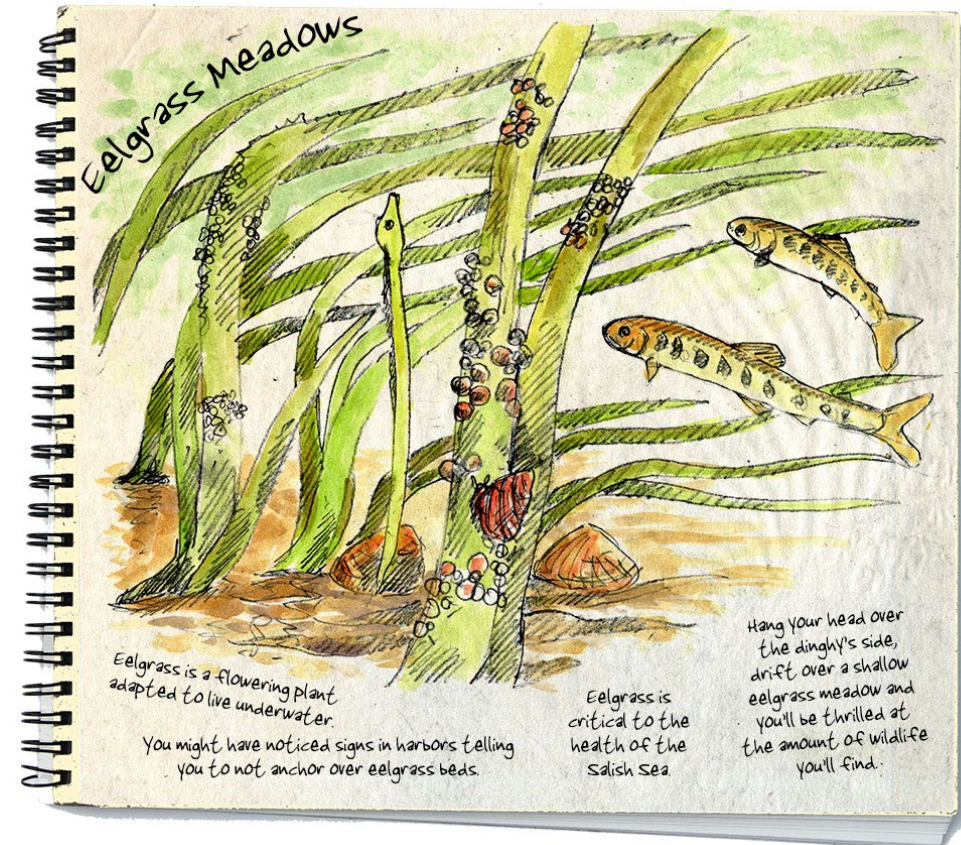 Eelgrass Meadows
Eelgrass is a flowering plant
adapted to live underwater.
You might have noticed signs in harbors telling
you to not anchor over eelgrass beds.
Eelgrass is
critical to the
health of the
Salish Sea.
Hang your head over
the dinghy's side,
drift over a shallow
eelgrass meadow and
you'll be thrilled at
the amount of wildlife
you'll find.